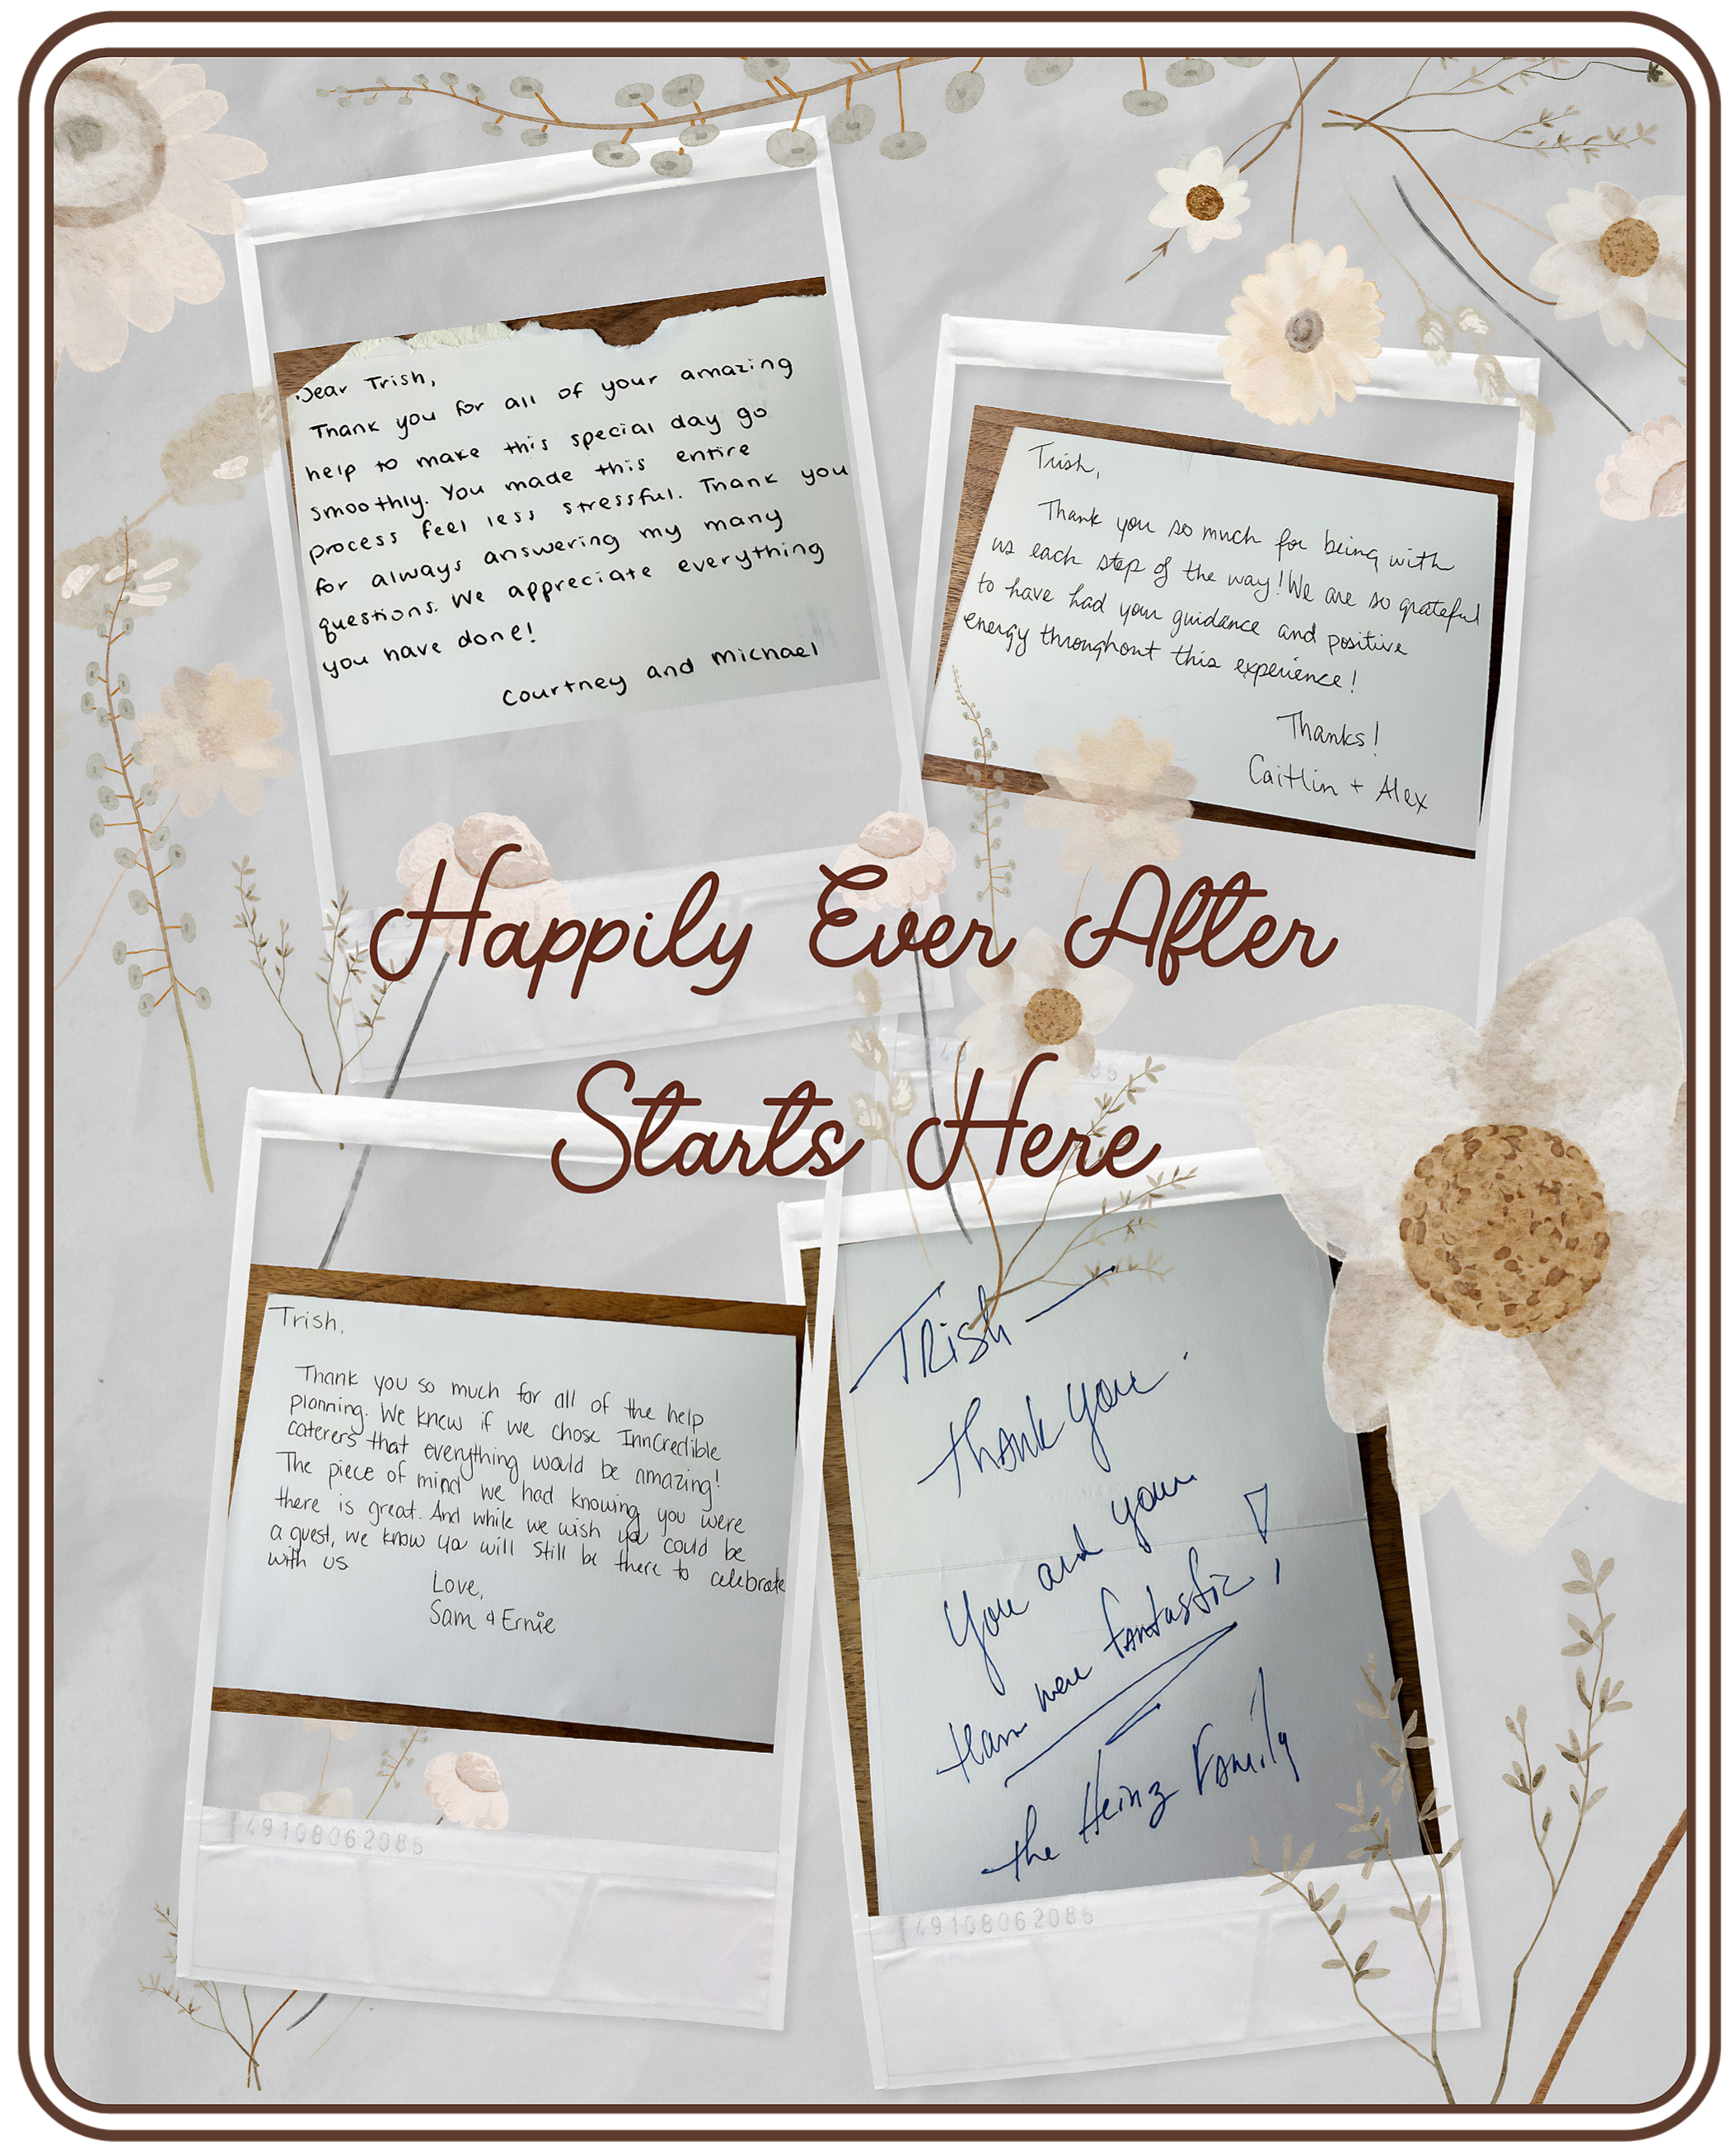 Dear Trish,
Thank you for all of your amazing
help to make this special day go
smoothly. You made this entire
process feel less stressful. Thank you
for always answering my many
questions. We appreciate everything
you have done!
Courtney and Michael
Trish,
Thank you so much for being with
us each step of the way! We are so grateful
to have had your guidance and positive
energy throughout this experience!
Thanks!
Caitlin + Alex
Happily Ever After
Starts Here
Trish,
Thank you so much for all of the help
planning. We knew if we chose InnCredible
caterers that everything would be amazing!
The piece of mind we had knowing you were
there is great. And while we wish you could be
a guest, we know you will still be there to celebrate
with us
Love,
Sam & Ernie
49108062086
TRish —
Thank you.
You and your
team were fantastic!
the Heinz Family
49108062086